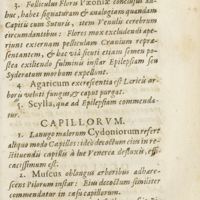 3. Folliculus Floris Pæoniæ conclusus ali-
bus, habet signaturam & analogiam quandam
Capiti cum Suturis, item Penulis cerebrum
circumdantibus: Flores mox excludendi ape-
riunt externam Pelliculam Cranium repræ-
sentantem, & hac viâ sicut etiam semen po-
stea exiliendo fulminis instar Epilepsiam seu
Syderatum morbum expellunt.
4. Agaricum excrescentia est Laricis ar-
boris velut fungus, & caput purgat.
5. Scylla, quæ ad Epilepsiam commenda-
tur.
CAPILLORVM.
1. Lanugo malorum Cydoniorum refert
aliquo modo Capillos: ideò decoctum eius in re-
stituendis capillis à lue Venerea defluxis, effi-
cacissimum est.
2. Muscus oblongus arboribus adhære-
scens Pilorum instar: Eius decoctum similiter
commendatur in casu capillorum.